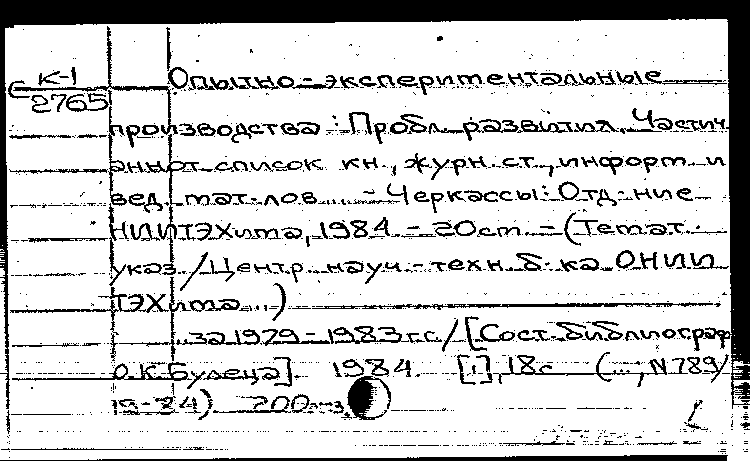 К-1
2765
Опытно-экспериментальные
производства: Пробл. развития. Частич
аннот. список кн., журн. ст., информ. и
вед. мат-лов ... - Черкассы: Отд-ние
НИИТЭХима, 1984 - 20 см. - (Темат.
указ. / Центр. науч.-техн. б-ка ОНИИ
ТЭХима ...)
... за 1979-1983 гг. / [Сост. библиограф
О.К. Будеца]. 1984. [1], 18с (...; N 789/
19-84) 200 экз.